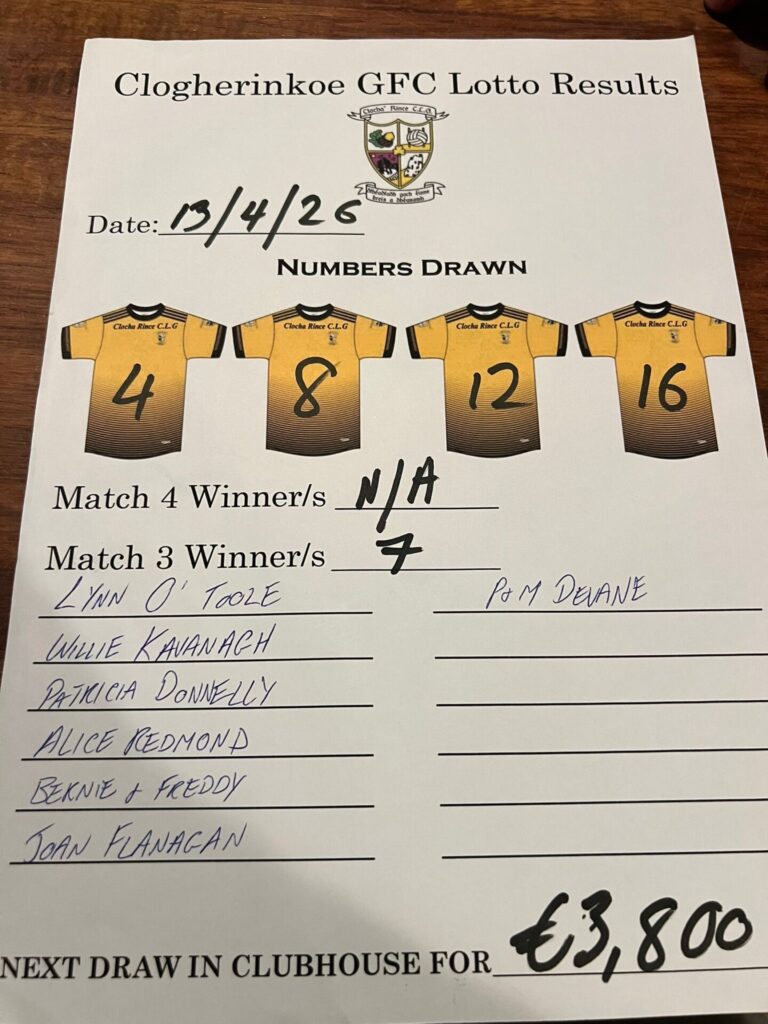 Clogherinkoe GFC Lotto Results
Clocha' Rince C.L.G.
Date: 13/4/26
NUMBERS DRAWN
Clocha Rince C.L.G Clocha Rince C.L.G Clocha Rince C.L.G Clocha Rince C.L.G
4 8 12 16
Match 4 Winner/s N/A
Match 3 Winner/s 7
LYNN O' TOOLE P&M DEVANE
WILLIE KAVANAGH
PATRICIA DONNELLY
ALICE REDMOND
BERNIE & FREDDY
JOAN FLANAGAN
NEXT DRAW IN CLUBHOUSE FOR €3,800